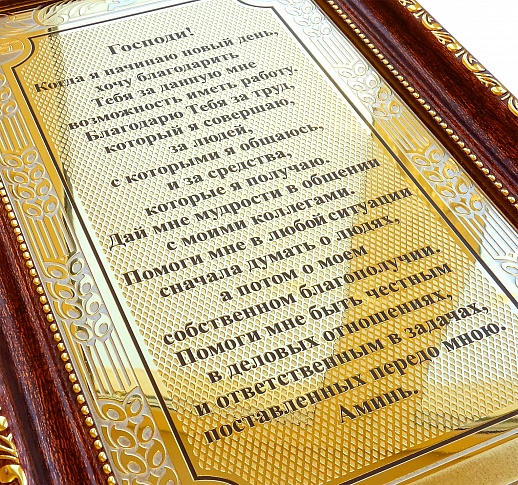 Господи!
Когда я начинаю новый день,
хочу благодарить
Тебя за данную мне
возможность иметь работу.
Благодарю Тебя за труд,
который я совершаю,
за людей,
с которыми я общаюсь,
и за средства,
которые я получаю.
Дай мне мудрости в общении
с моими коллегами.
Помоги мне в любой ситуации
сначала думать о людях,
а потом о моем
собственном благополучии.
Помоги мне быть честным
в деловых отношениях,
и ответственным в задачах,
поставленных передо мною.
Аминь.